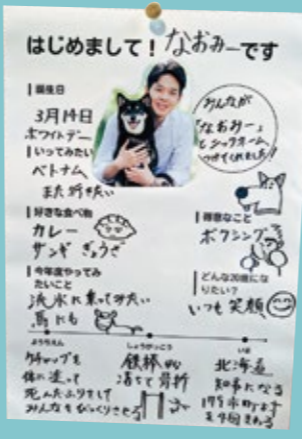 はじめまして！なおみーです
誕生日
3月14日
ホワイトデー
いってみたい
ベトナム
また行きたい
みんなが
「なおみー」
とニックネーム
つけてくれました！
好きな食べ物
カレー
ザンギ ぎょうざ
得意なこと
ボクシング
今年度やってみ
たいこと
流氷に乗ってみたい
馬にも
どんな20歳にな
りたい？
いつも笑顔
ようちえん
しょうがっこう
いま
ケチャップを
体に塗って
死んだふりをして
みんなをびっくりさせる
鉄棒から
落ちて骨折
北海道
知事になる